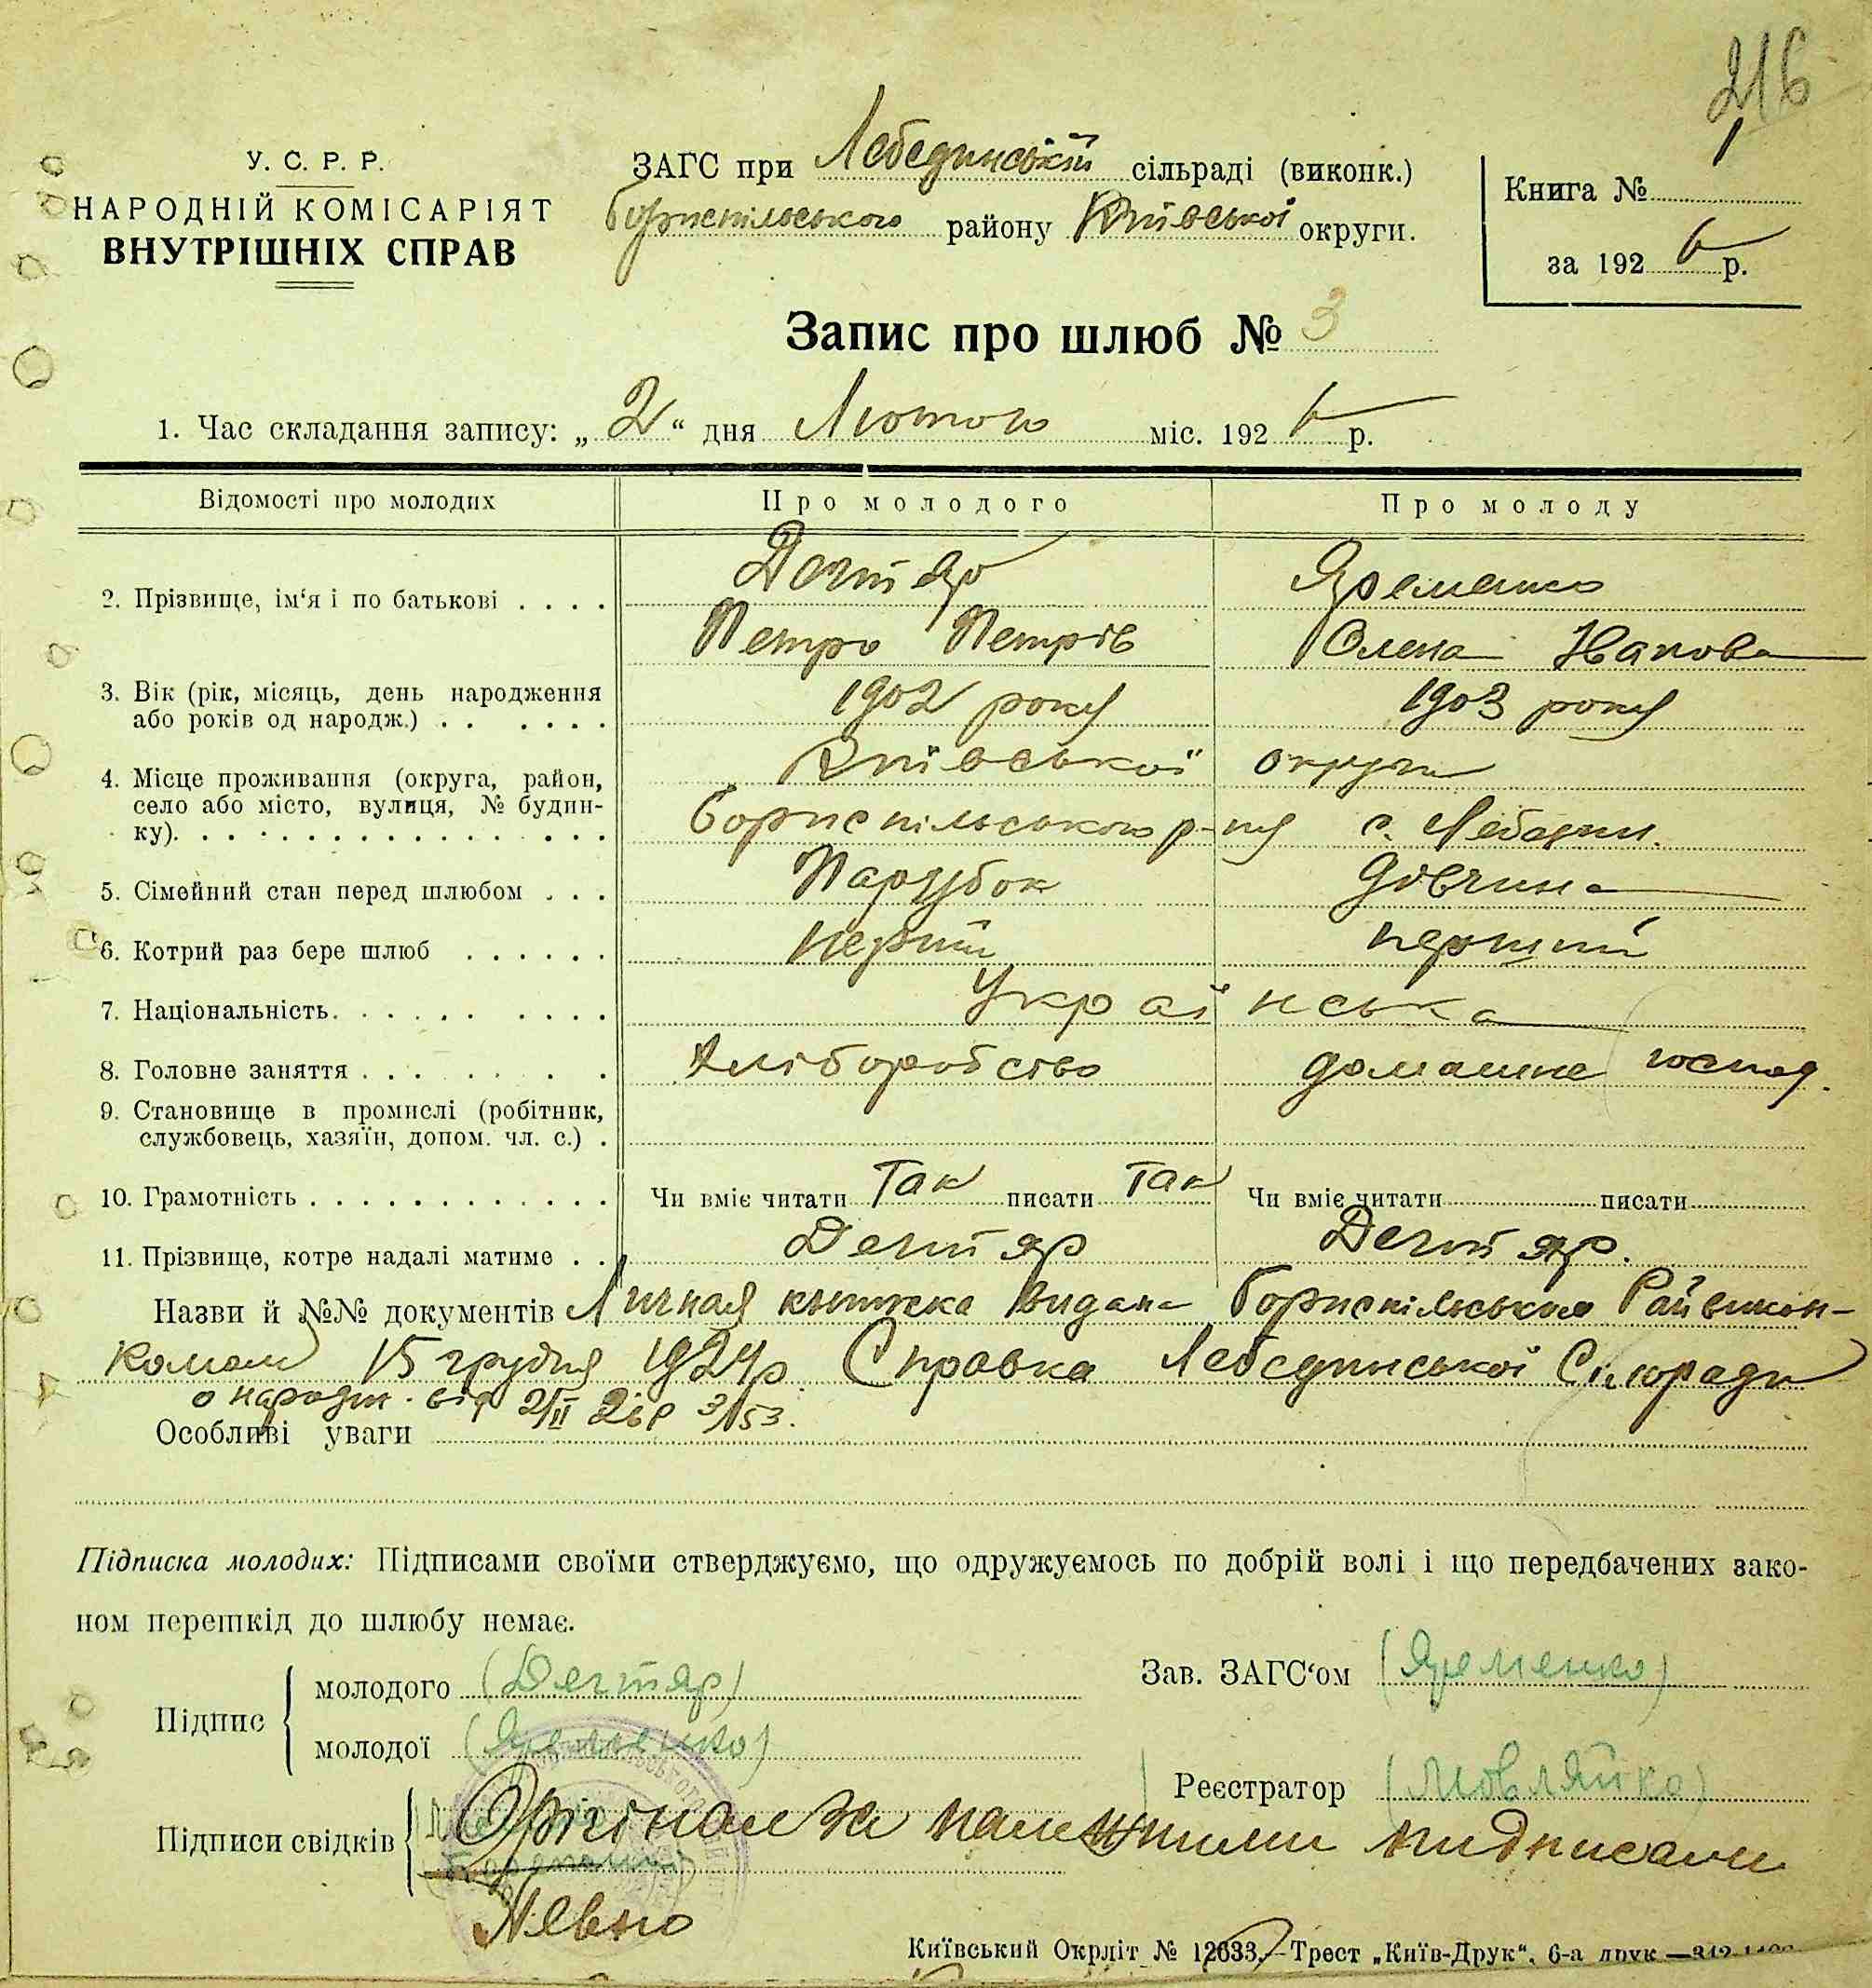 216
У. С. Р. Р.
НАРОДНІЙ КОМІСАРІЯТ
ВНУТРІШНІХ СПРАВ
ЗАГС при Лебединській сільраді (виконк.)
Бориспільського району Київської округи.
Книга № 1
за 1926 р.
Запис про шлюб № 3
1. Час складання запису: „2“ дня Лютого міс. 1926 р.
Відомості про молодих Про молодого Про молоду
2. Прізвище, ім‘я і по батькові . . . . Дегтяр Яременко
Петро Петрів Олена
3. Вік (рік, місяць, день народження 1902 року 1903 року
або років од народж.) . . . . . .
4. Місце проживання (округа, район, Київської округи
село або місто, вулиця, № будин- Бориспільського р-ну с. Лебедин.
ку). . . . . . . . . . . . . .
5. Сімейний стан перед шлюбом . . . Парубок Дівчина
6. Котрий раз бере шлюб . . . . . . перший
7. Національність. . . . . . . . . . Українська
8. Головне заняття . . . . . . . . Хліборобство домашнє господ.
9. Становище в промислі (робітник,
службовець, хазяїн, допом. чл. с.) .
10. Грамотність . . . . . . . . . . . . . Чи вміє читати Так писати Так Чи вміє читати писати
11. Прізвище, котре надалі матиме . . Дегтяр Дегтяр.
Назви й №№ документів Личная книжка видана Бориспільським Райвикон-
комом 15 грудня 1924 р. Справка Лебединської Сільради
о народж. від 2/II 26 р 3/153.
Особливі уваги
Підписка молодих: Підписами своїми стверджуємо, що одружуємось по добрій волі і що передбачених зако-
ном перешкід до шлюбу немає.
Підпис
молодого (Дегтяр)
Зав. ЗАГС‘ом (Яременко)
молодої (Яременко)
Реєстратор
Підписи свідків
Орігінал за належними підписами
Певно
Київський Окрліт № 12633.—Трест „Київ-Друк“, 6-а друк.—342-